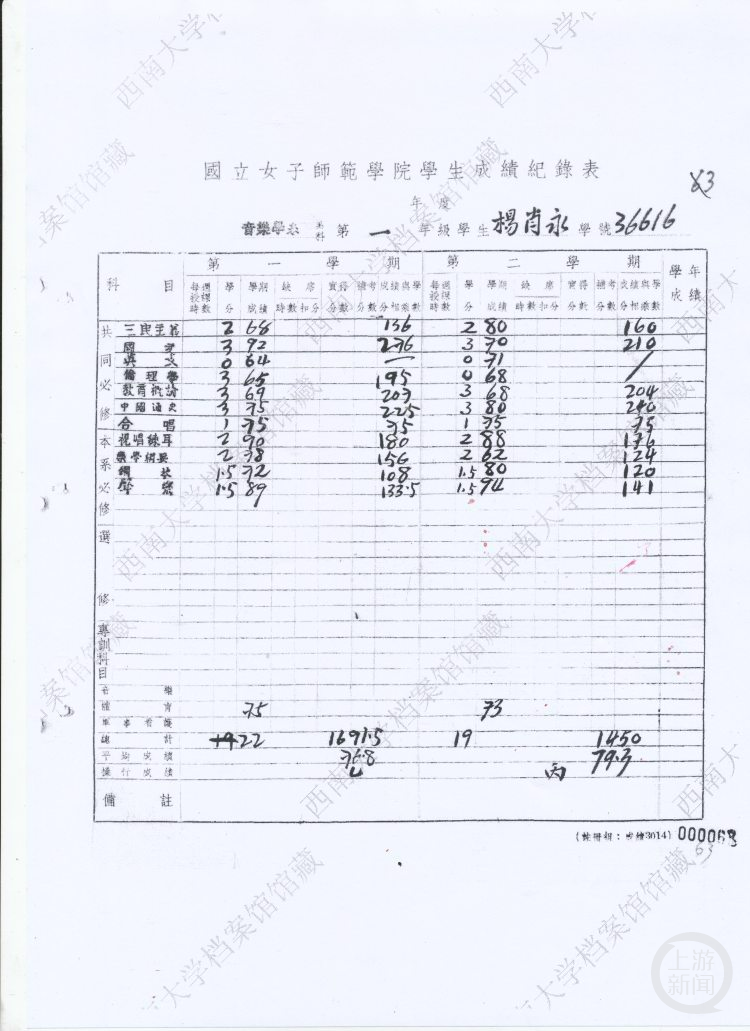 國立女子師範學院學生成績紀錄表
83
年度
音樂學系 第 一 年級學生 楊肖永 學號 36616
科目 第一學期 第二學期 學年成績
每週授課時數 學分 學期成績 缺席時數 扣分 實得分數 補考分數 成績與學分相乘數 每週授課時數 學分 學期成績 缺席時數 扣分 實得分數 補考分數 成績與學分相乘數
共同必修
三民主義 2 68 136 2 80 160
國文 3 92 276 3 70 210
英文 0 64 — 0 71 /
倫理學 3 65 195 0 68
教育概論 3 69 207 3 68 204
中國通史 3 75 225 3 80 240
合唱 1 75 75 1 75 75
本系必修
視唱練耳 2 90 180 2 88 176
樂學綱要 2 78 156 2 62 124
鋼琴 1.5 72 108 1.5 80 120
聲樂 1.5 89 133.5 1.5 94 141
選修
專訓科目
音樂
體育 75 73
軍事看護
總計 19 22 1691.5 19 1450
平均成績 76.8 79.3
操行成績 丙
備註
(註冊組:成績3014) 000063
63
西南大学档案馆馆藏
上游新闻